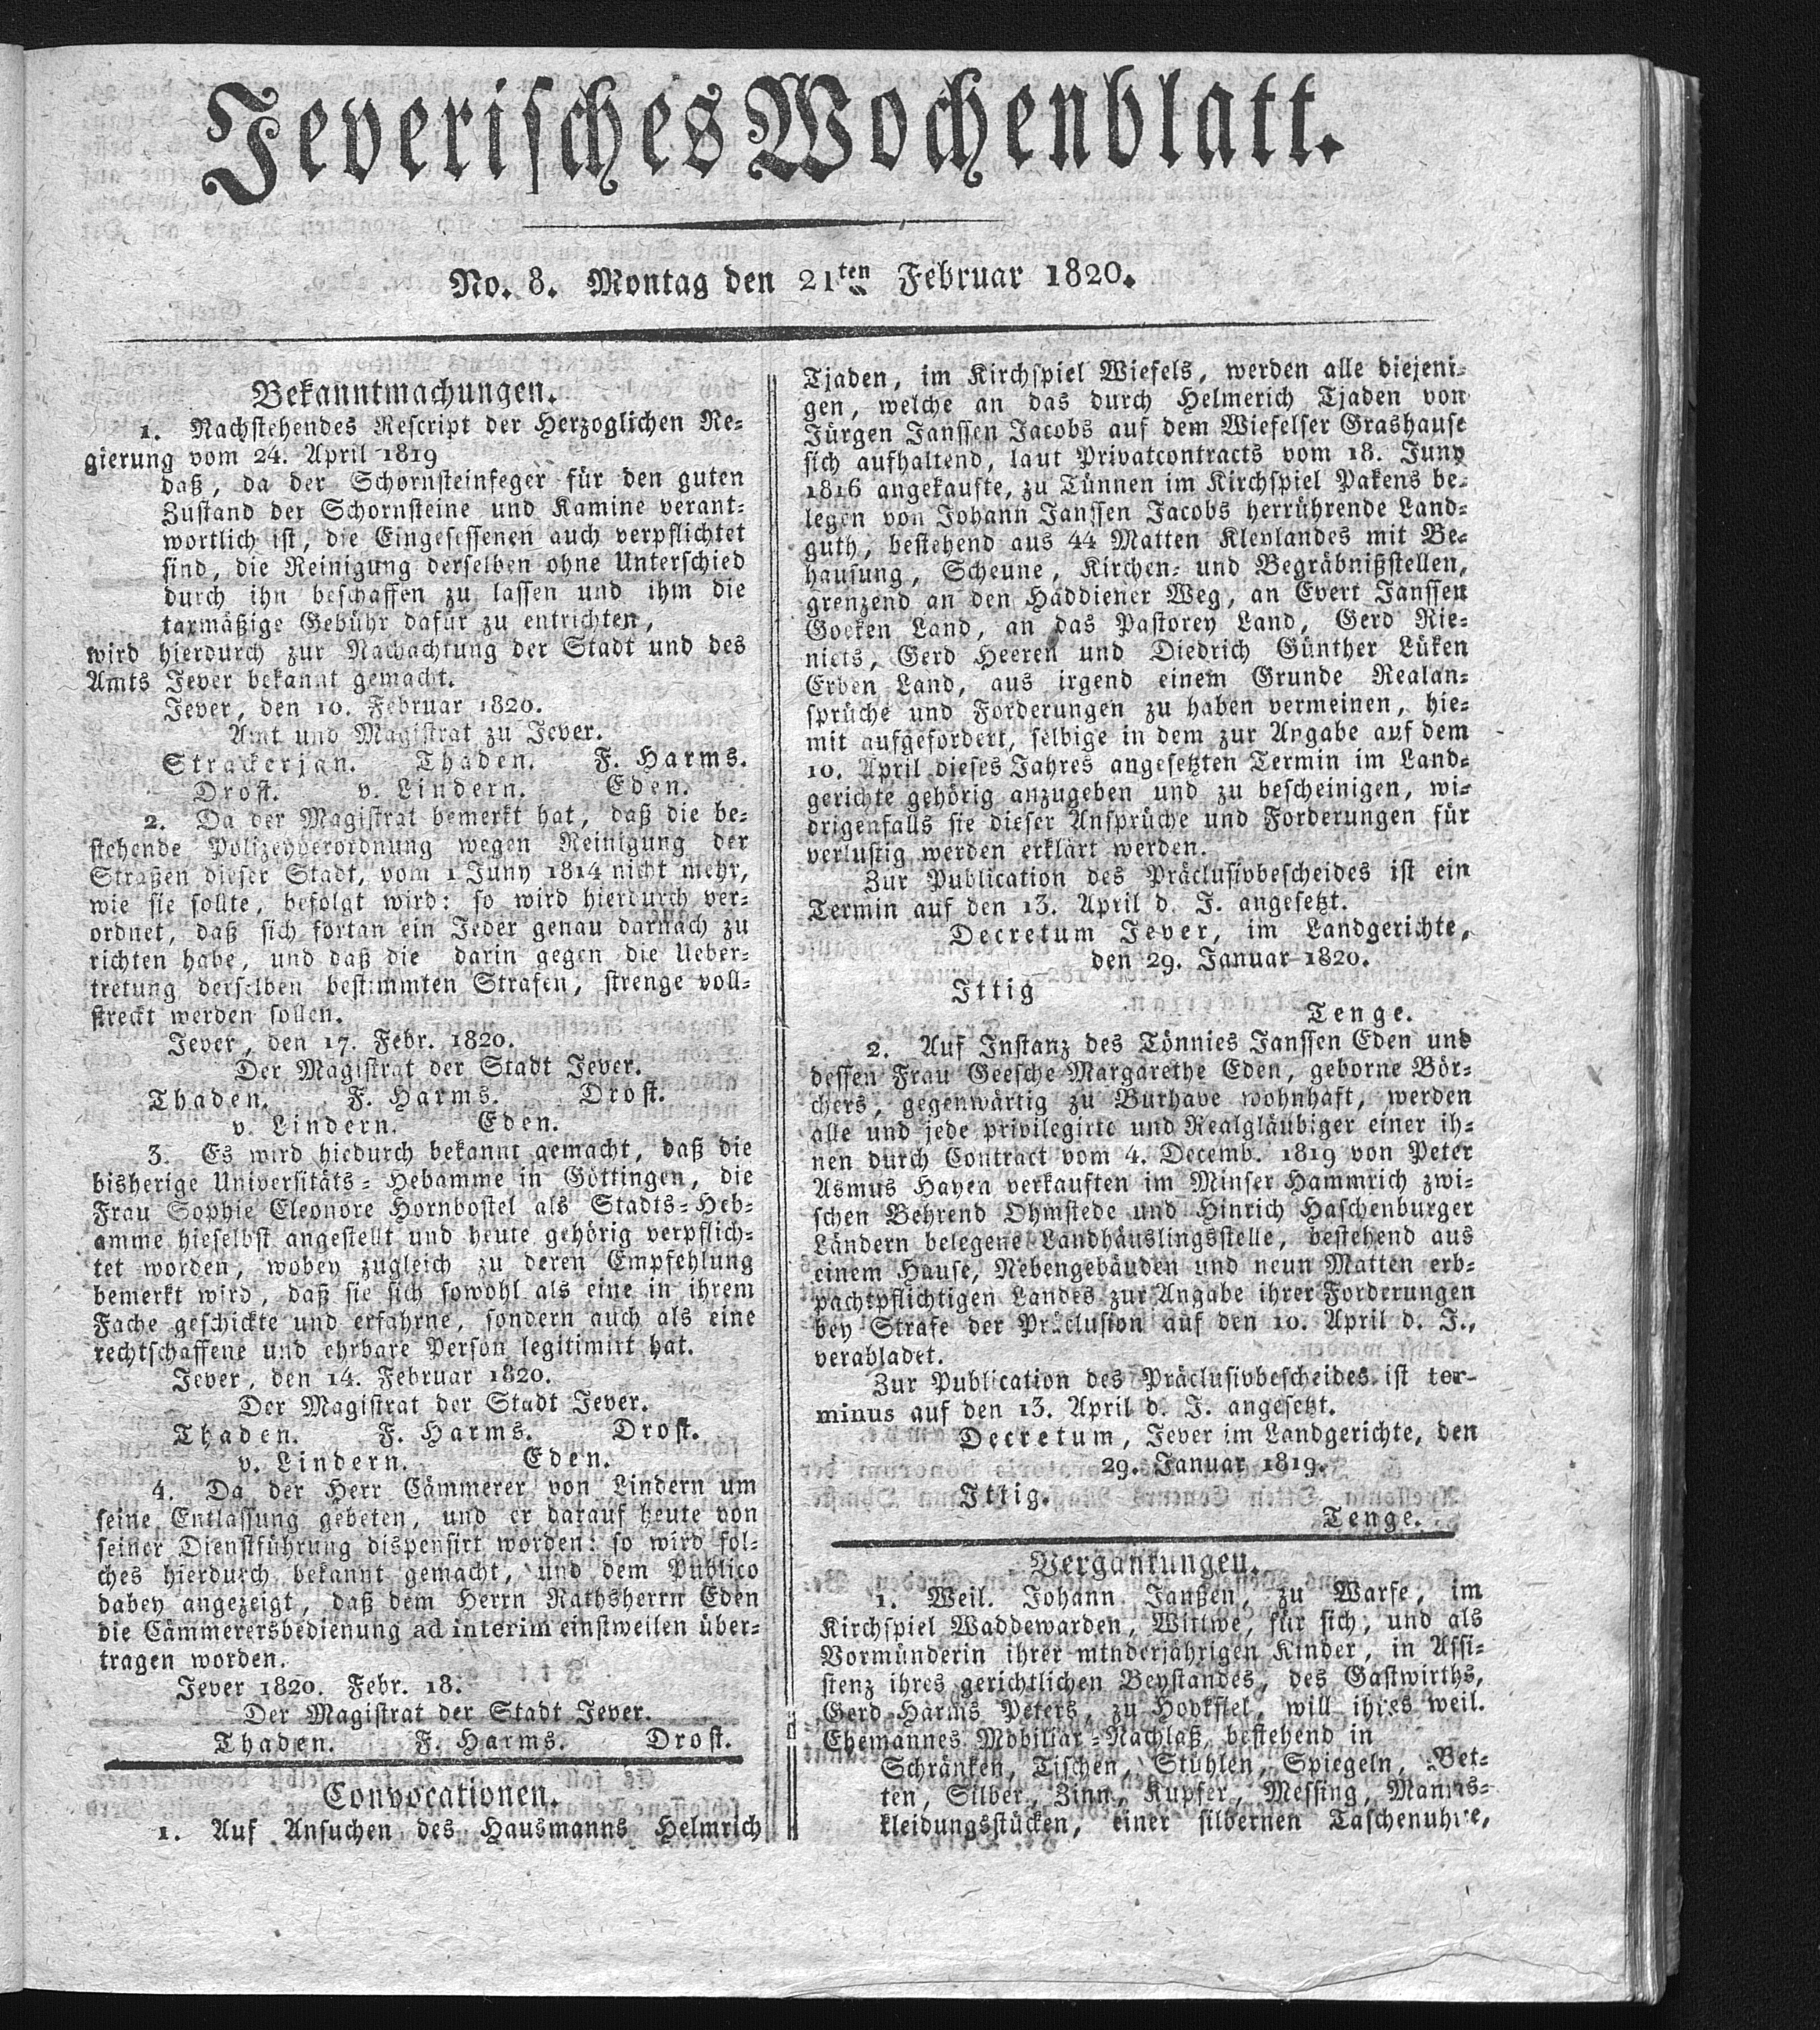 Jeverisches Wochenblatt.
No. 8. Montag den 21ten Februar 1820.
Bekanntmachungen.
1. Nachstehendes Rescript der Herzoglichen Re=
gierung vom 24. April 1819
daß, da der Schornsteinfeger für den guten
Zustand der Schornsteine und Kamine verant=
wortlich ist, die Eingesessenen auch verpflichtet
sind, die Reinigung derselben ohne Unterschied
durch ihn beschaffen zu lassen und ihm die
taxmäßige Gebühr dafür zu entrichten,
wird hierdurch zur Nachachtung der Stadt und des
Amts Jever bekannt gemacht.
Jever, den 10. Februar 1820.
Amt und Magistrat zu Jever.
Strackerjan. Thaden. F. Harms.
Drost. v. Lindern. Eden.
2. Da der Magistrat bemerkt hat, daß die be=
stehende Polizeyverordnung wegen Reinigung der
Straßen dieser Stadt, vom 1 Juny 1814 nicht mehr,
wie sie sollte, befolgt wird: so wird hierdurch ver=
ordnet, daß sich fortan ein Jeder genau darnach zu
richten habe, und daß die darin gegen die Ueber=
tretung derselben bestimmten Strafen, strenge voll=
streckt werden sollen.
Jever, den 17. Febr. 1820.
Der Magistrat der Stadt Jever.
Thaden. F. Harms. Drost.
v. Lindern. Eden.
3. Es wird hiedurch bekannt gemacht, daß die
bisherige Universitäts=Hebamme in Göttingen, die
Frau Sophie Eleonore Hornbostel als Stadts=Heb=
amme hieselbst angestellt und heute gehörig verpflich=
tet worden, wobey zugleich zu deren Empfehlung
bemerkt wird, daß sie sich sowohl als eine in ihrem
Fache geschickte und erfahrne, sondern auch als eine
rechtschaffene und ehrbare Person legitimirt hat.
Jever, den 14. Februar 1820.
Der Magistrat der Stadt Jever.
Thaden. F. Harms. Drost.
v. Lindern. Eden.
4. Da der Herr Cämmerer von Lindern um
seine Entlassung gebeten, und er darauf heute von
seiner Dienstführung dispensirt worden: so wird sol=
ches hierdurch bekannt gemacht, und dem Publico
dabey angezeigt, daß dem Herrn Rathsherrn Eden
die Cämmerersbedienung ad interim einstweilen über=
tragen worden.
Jever 1820. Febr. 18.
Der Magistrat der Stadt Jever.
Thaden. F. Harms. Drost.
Convocationen.
1. Auf Ansuchen des Hausmanns Helmrich
Tjaden, im Kirchspiel Wiefels, werden alle diejeni=
gen, welche an das durch Helmerich Tjaden von
Jürgen Janssen Jacobs auf dem Wiefelser Grashause
sich aufhaltend, laut Privatcontracts vom 18. Juny
1816 angekaufte, zu Tünnen im Kirchspiel Pakens be=
legen von Johann Janssen Jacobs herrührende Land=
guth, bestehend aus 44 Matten Kleylandes mit Be=
hausung, Scheune, Kirchen= und Begräbnißstellen,
grenzend an den Haddiener Weg, an Evert Janssen
Gocken Land, an das Pastorey Land, Gerd Rie=
niets, Gerd Heeren und Diedrich Günther Lüken
Erben Land, aus irgend einem Grunde Realan=
sprüche und Forderungen zu haben vermeinen, hie=
mit aufgefordert, selbige in dem zur Angabe auf dem
10. April dieses Jahres angesetzten Termin im Land=
gerichte gehörig anzugeben und zu bescheinigen, wi=
drigenfalls sie dieser Ansprüche und Forderungen für
verlustig werden erklärt werden.
Zur Publication des Präclusivbescheides ist ein
Termin auf den 13. April d. J. angesetzt.
Decretum Jever, im Landgerichte,
den 29. Januar 1820.
Ittig
Tenge.
2. Auf Instanz des Tönnies Janssen Eden und
dessen Frau Geesche Margarethe Eden, geborne Bör=
chers, gegenwärtig zu Burhave wohnhaft, werden
alle und jede privilegirte und Realgläubiger einer ih=
nen durch Contract vom 4. Decemb. 1819 von Peter
Asmus Hayen verkauften im Minser Hammrich zwi=
schen Behrend Ohmstede und Hinrich Haschenburger
Ländern belegene Landhäuslingsstelle, bestehend aus
einem Hause, Nebengebäuden und neun Matten erb=
pachtpflichtigen Landes zur Angabe ihrer Forderungen
bey Strafe der Präclusion auf den 10. April d. J.,
verabladet.
Zur Publication des Präclusivbescheides ist ter-
minus auf den 13. April d. J. angesetzt.
Decretum, Jever im Landgerichte, den
29. Januar 1819.
Ittig.
Tenge.
Vergantungen.
1. Weil. Johann Janßen, zu Warfe, im
Kirchspiel Waddewarden, Wittwe, für sich, und als
Vormünderin ihrer minderjährigen Kinder, in Assi=
stenz ihres gerichtlichen Beystandes, des Gastwirths,
Gerd Harms Peters, zu Hooksiel, will ihres weil.
Ehemannes Mobiliar=Nachlaß, bestehend in
Schränken, Tischen, Stühlen, Spiegeln, Bet=
ten, Silber, Zinn, Kupfer, Messing, Manns=
kleidungsstücken, einer silbernen Taschenuhre,